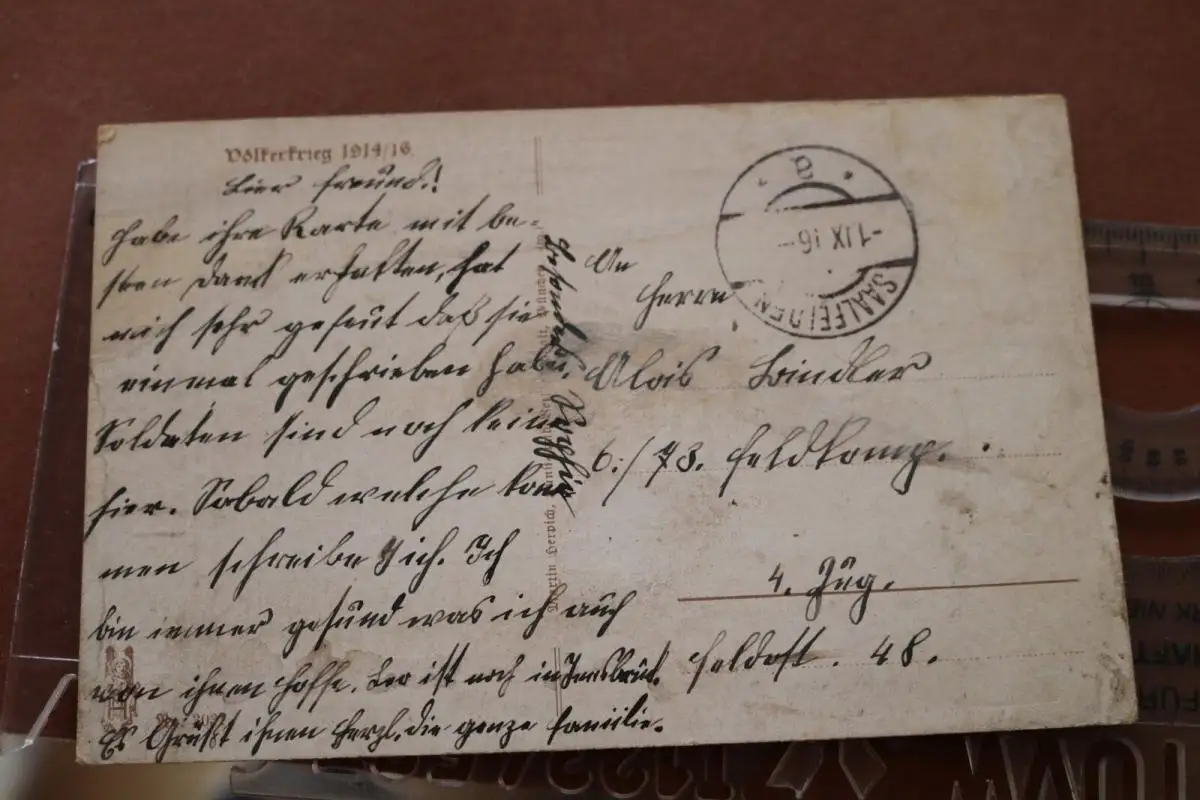 Völkerkrieg 1914/16
Lier Freund.!
habe ihre Karte mit be-
sten Dank erhalten, hat
mich sehr gefreut daß sie
einmal geschrieben habn.
Soldaten sind noch keine
hier. Sobald welche kom
men schreibe ich. Ich
bin immer gesund was ich auch
von ihnen hoffe. Leo ist noch in Innsbruk.
Es Grüßt ihnen herzl. die ganze Familie.
besonders
An
Herrn
Alois
6./73. Feldkomp.
4. Zug.
Feldpost. 48.
SAALFELDEN
a
-1.IX.16-
Martin Herpich, München